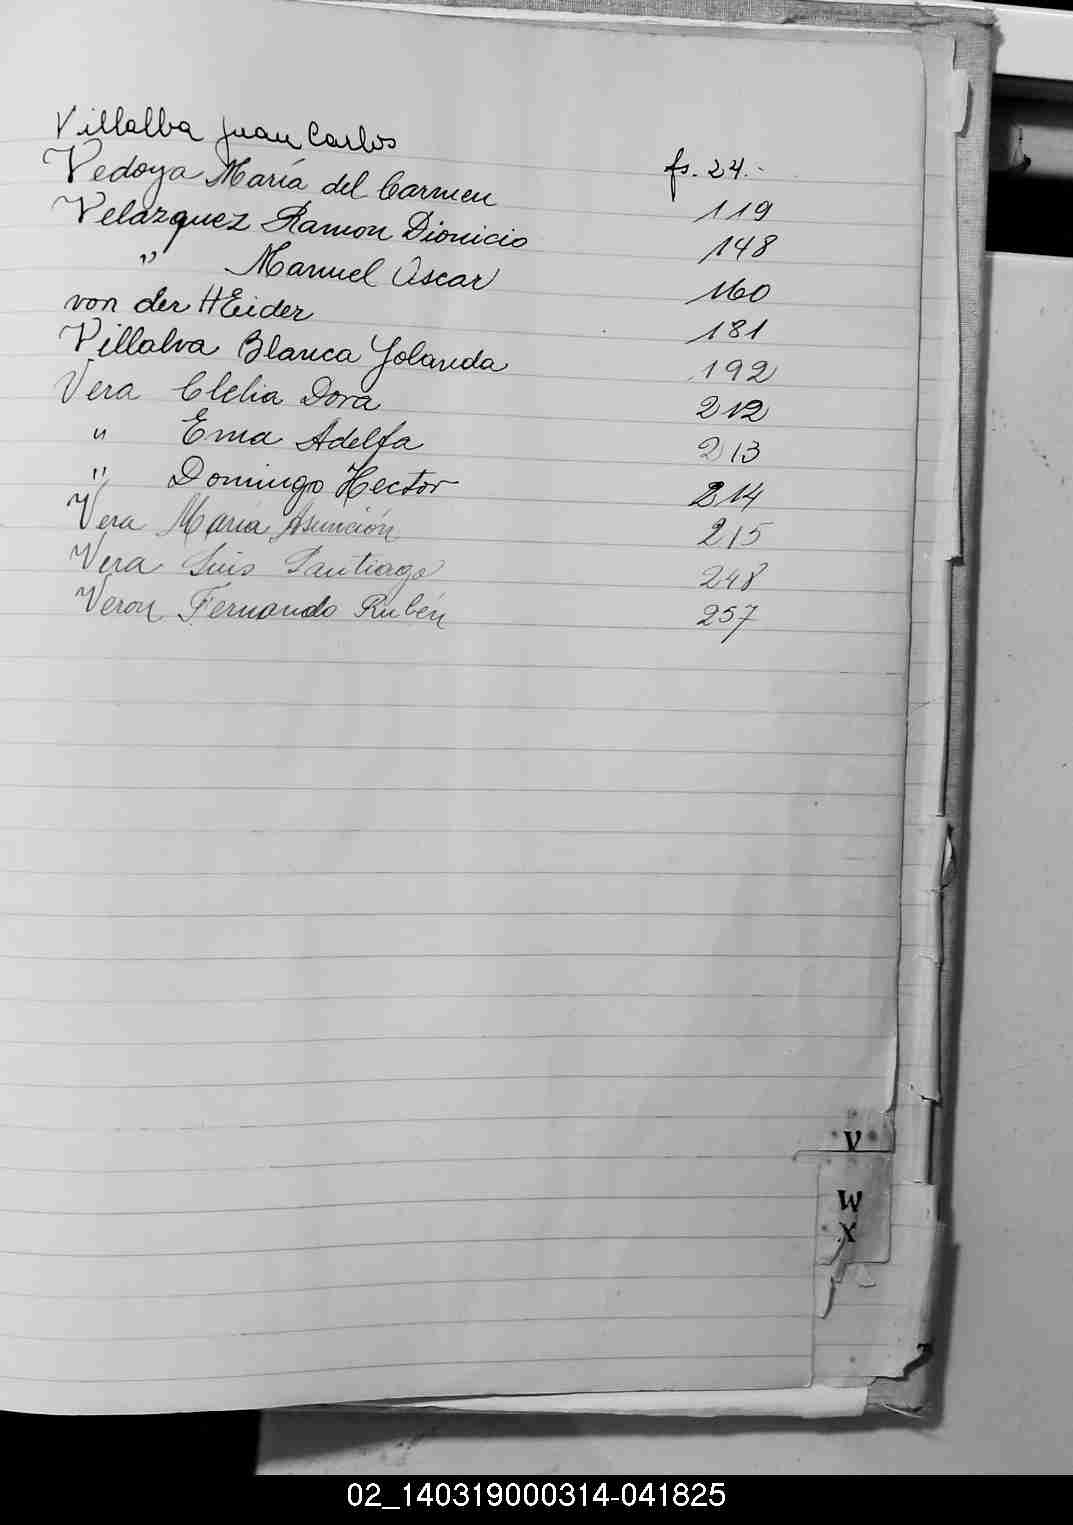 Villalba Juan Carlos fs. 24.-
Vedoya María del Carmen 119
Velazquez Ramon Dionicio 148
" Manuel Oscar 160
von der HEider 181
Villalva Blanca Yolanda 192
Vera Clelia Dora 212
" Ema Adelfa 213
" Domingo Hector 214
Vera María Asunción 215
Vera Luis Santiago 248
Veron Fernando Rubén 257
V
W
X
02_140319000314-041825